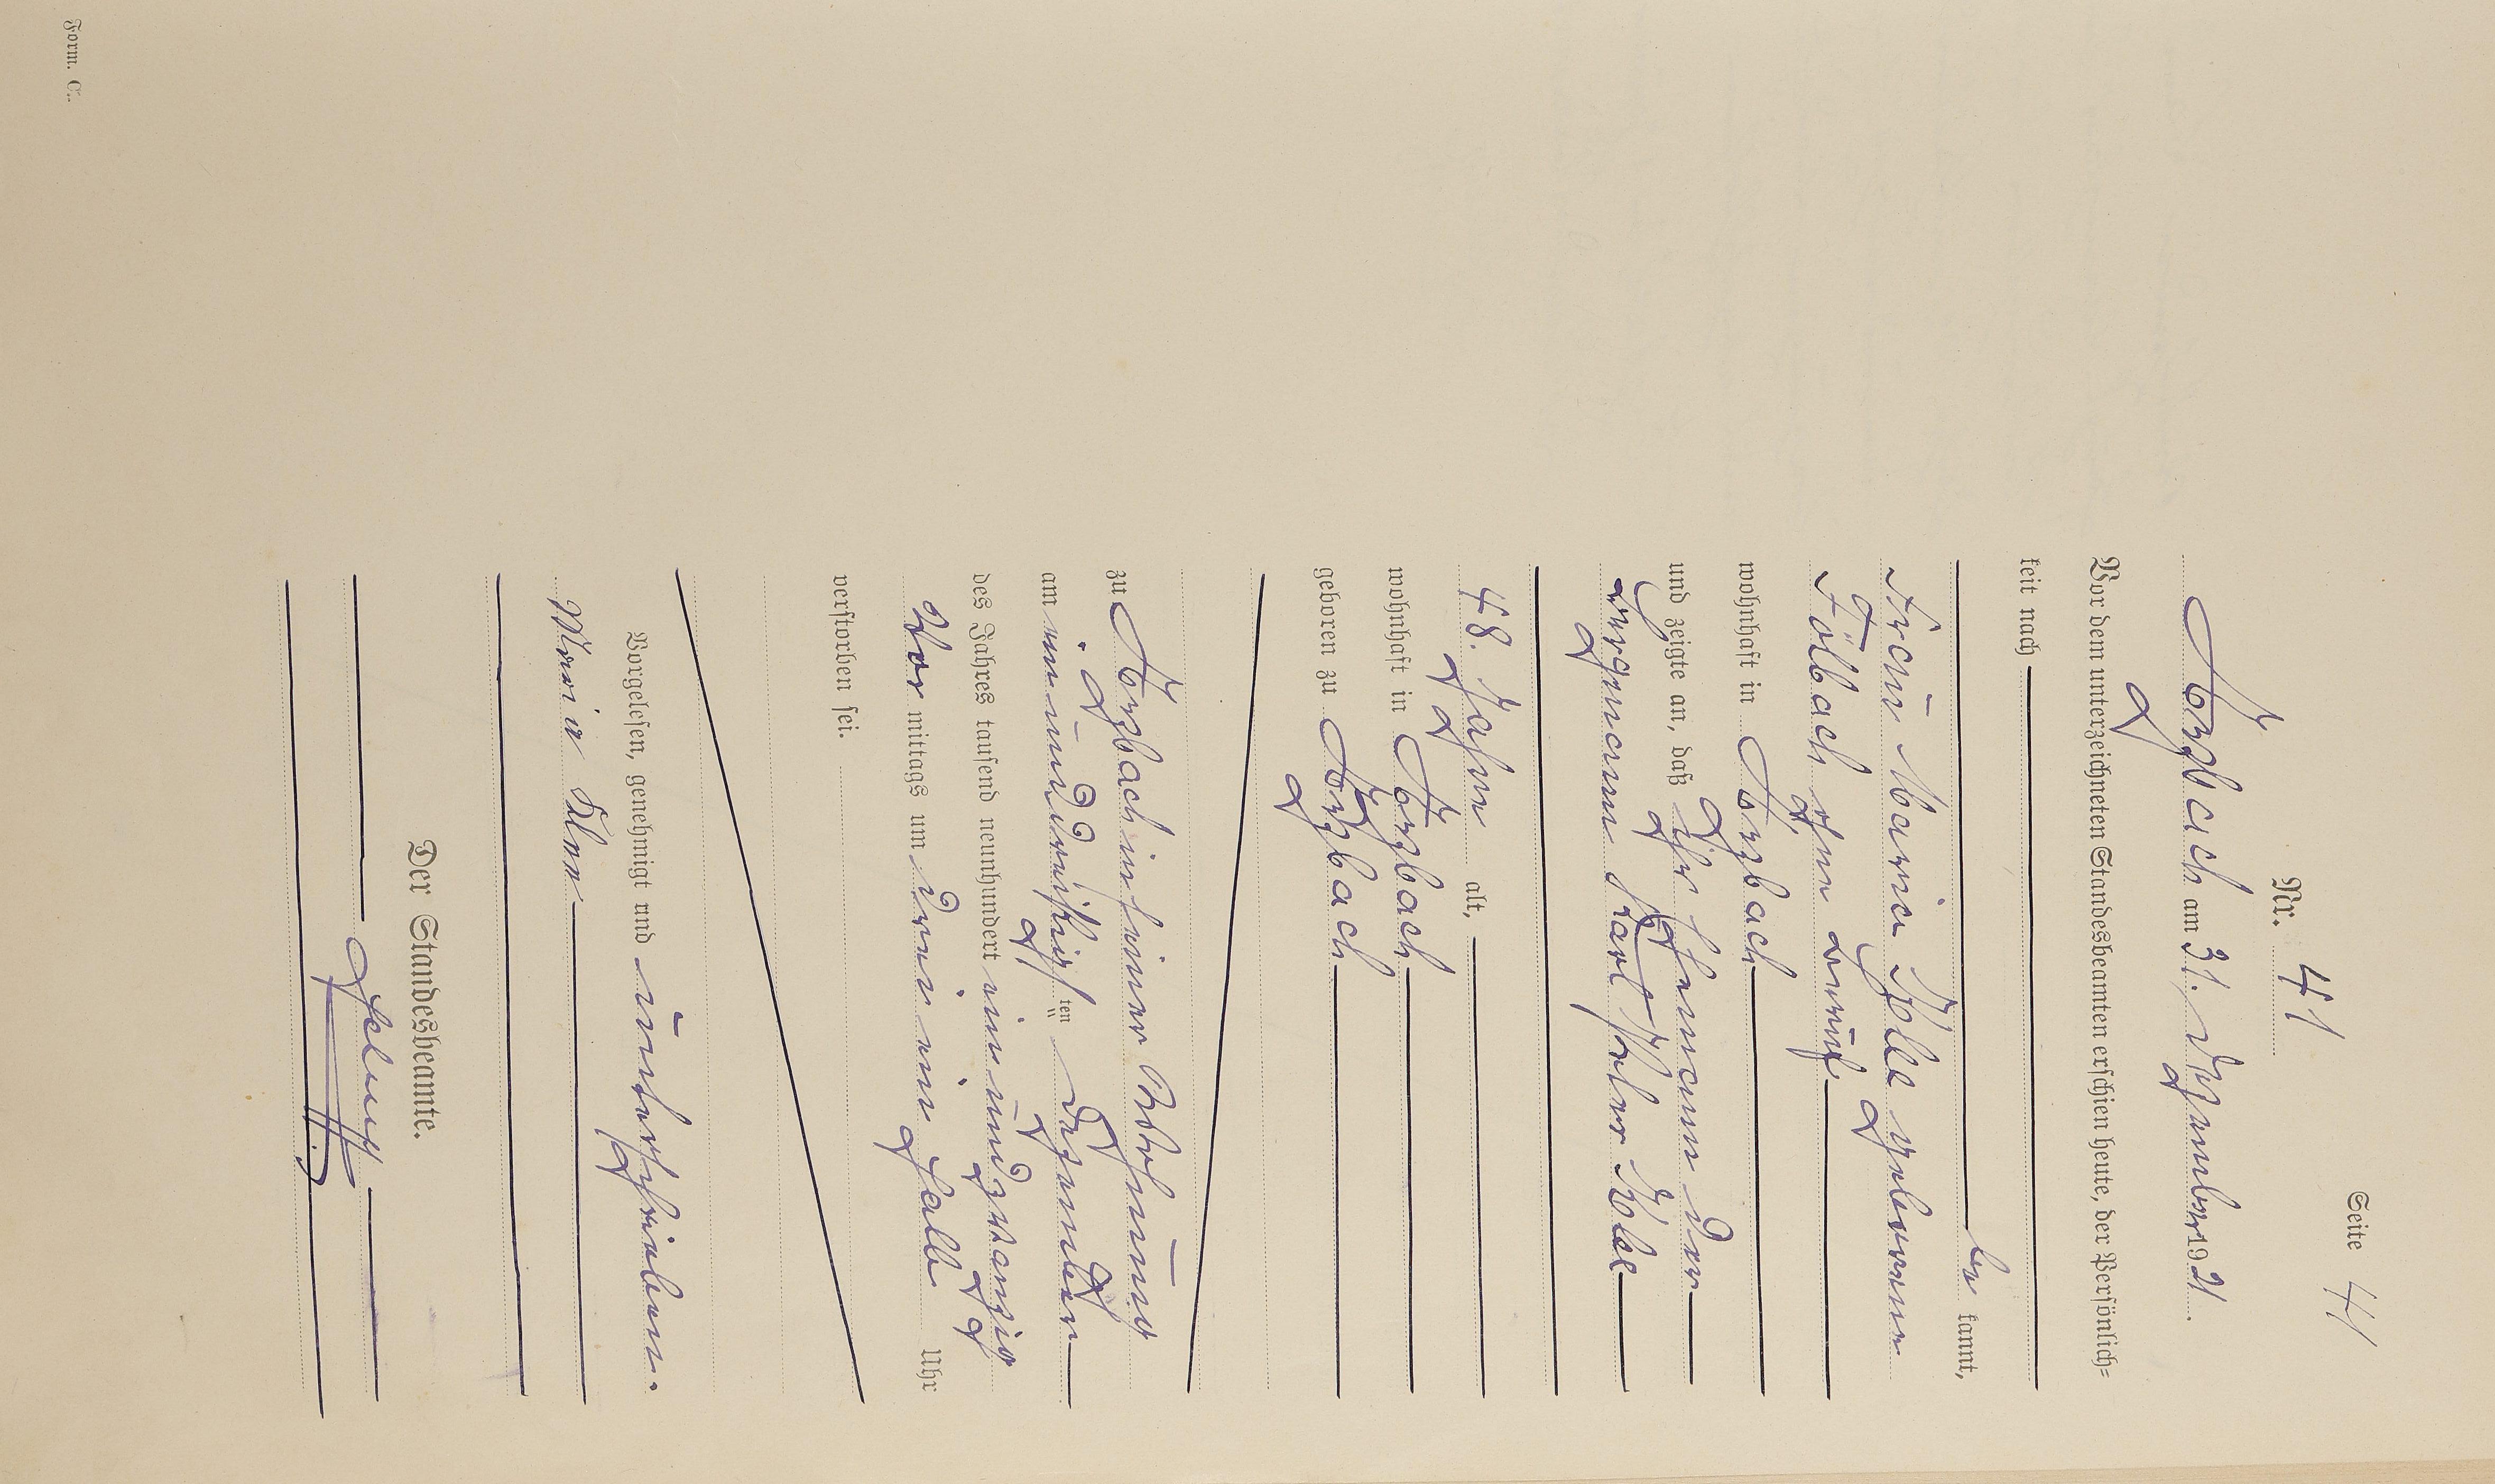 Seite 41
Nr. 41
Arzbach am 31. Dezember 1921.
Vor dem unterzeichneten Standesbeamten erschien heute, der Persönlich=
keit nach
be kannt,
Frau Maria geborene
Fölbach ohne Beruf
wohnhaft in Arzbach
und zeigte an, daß ihr Ehemann der
Bergmann Karl
48. Jahre alt,
wohnhaft in Arzbach
geboren zu Arzbach
zu Arzbach in seiner Wohnung
am einunddreißigs ten Dezember
des Jahres tausend neunhundert einundzwanzig
Vor mittags um drei ein halb Uhr
verstorben sei.
Vorgelesen, genehmigt und unterschrieben.
Maria
Der Standesbeamte.
Form. C.